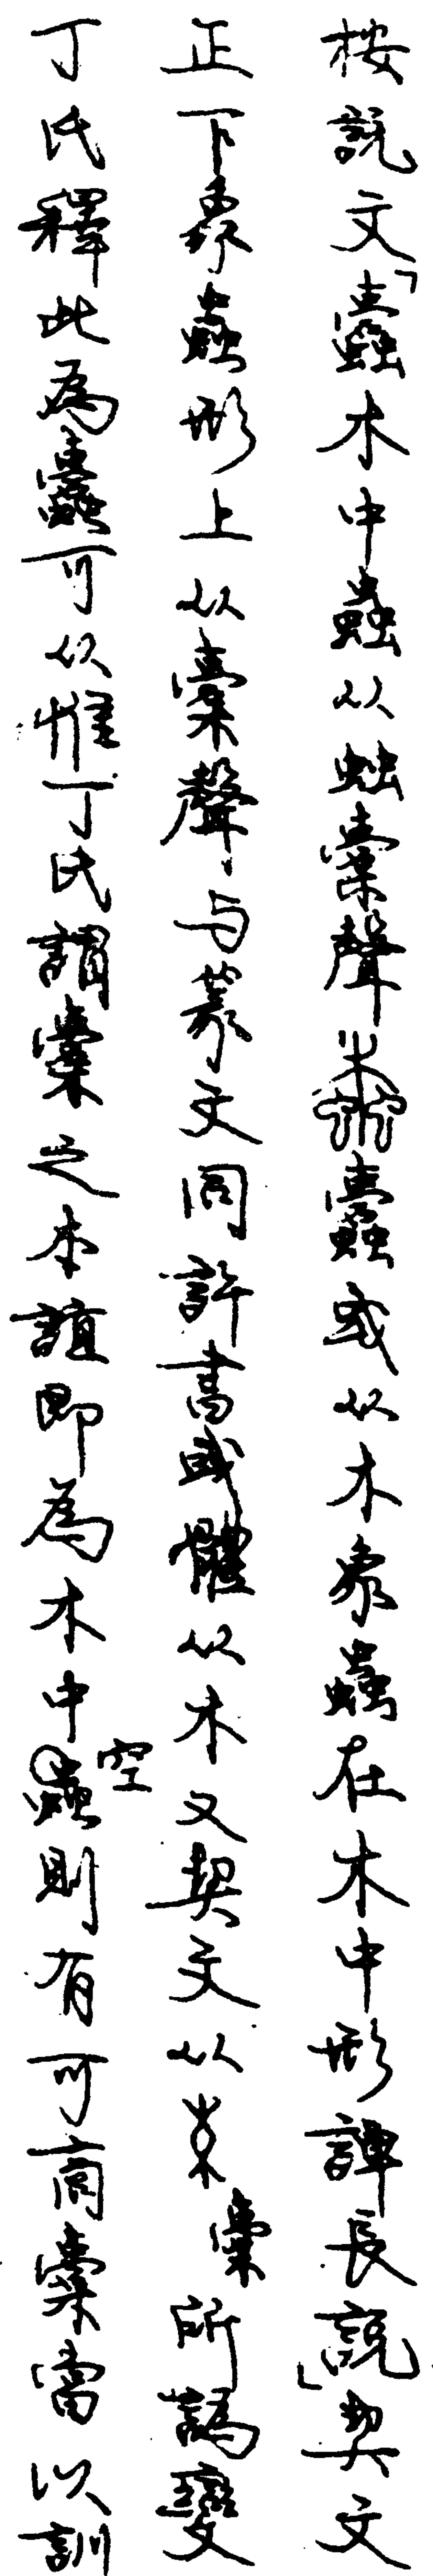 按說文「蠹木中蟲从䖵橐聲蠹或从木象蟲在木中形譚長說」契文
正下象蟲形上从橐聲与篆文同許書或體从木又契文从橐所譌變
丁氏釋此為蠹可从惟丁氏謂橐之本誼即為木中空則有可商橐當以訓